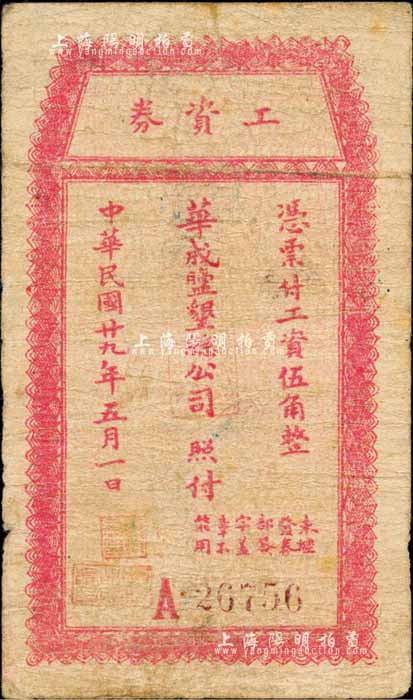 上海陽明拍賣
www.yangmingauction.com
工資券
憑票付工資伍角整
華成鹽墾公司 照付
未經
發奉
部簽
字蓋
章不
能用
中華民國廿九年五月一日
上海陽明拍賣
www.yangmingauction.com
A 26756
上海陽明拍賣
www.yangmingauction.com